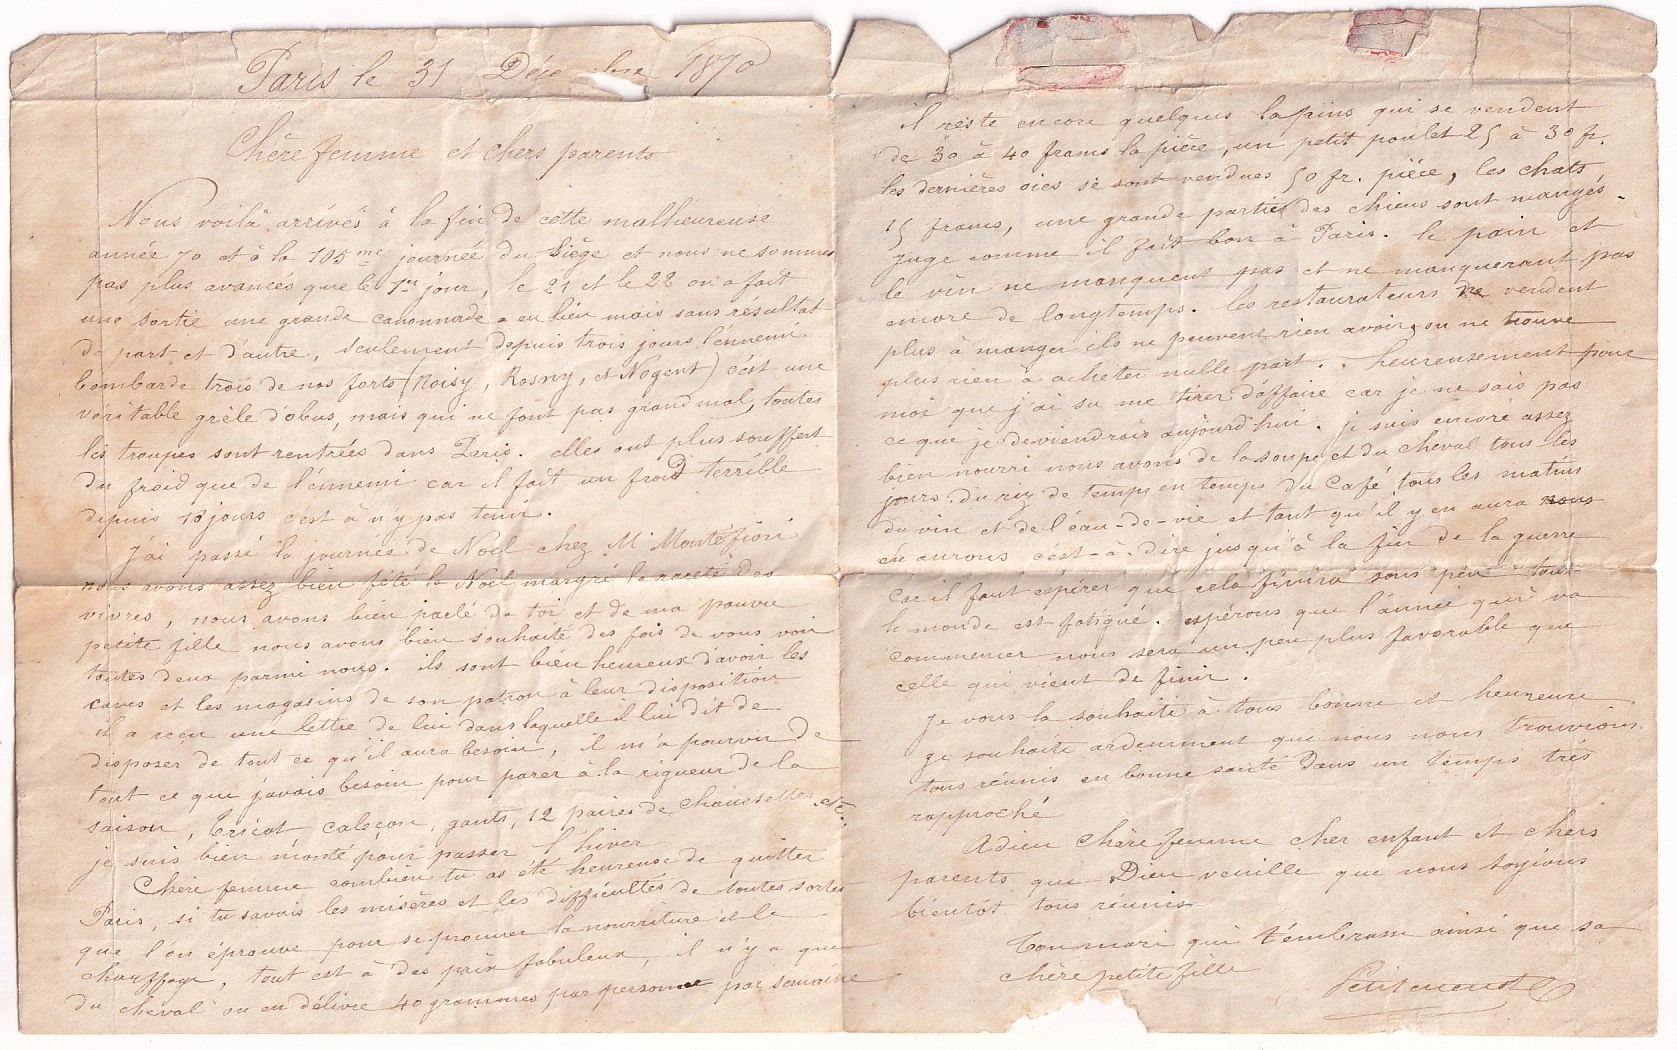 Paris le 31 Déce bre 1870
Chère femme et chers parents
Nous voilà arrivés à la fin de cette malheureuse
année 70 et à la 105me journée du siège et nous ne sommes
pas plus avancés que le 1er jour, le 21 et le 22 on a fait
une sortie une grande canonnade a eu lieu mais sans résultat
de part et d'autre, seulement depuis trois jours l'ennemi
bombarde trois de nos forts (Noisy, Rosny, et Nogent) c'est une
véritable grêle d'obus, mais qui ne font pas grand mal, toutes
les troupes sont rentrées dans Paris. elles ont plus souffert
du froid que de l'énnemi car il fait un froid terrible
depuis 18 jours c'est à n'y pas tenir.
J'ai passé la journée de Noël chez Mr Montéfiori
nous avons assez bien fêté la Noël margré la rareté des
vivres, nous avons bien parlé de toi et de ma pauvre
petite fille nous avons bien souhaité des fois de vous voir
toutes deux parmi nous. ils sont bien heureux d'avoir les
caves et les magasins de son patron à leur disposition
il a reçu une lettre de lui dans laquelle il lui dit de
disposer de tout ce qu'il aura besoin, il m'a pourvir de
tout ce que j'avais besoin pour parer à la rigueur de la
saison, tricot caleçon, gants, 12 paires de chaussettes etc.
je suis bien monté pour passer l'hiver
Chère femme combien tu as été heureuse de quitter
Paris, si tu savais les misères et les difficultés de toutes sortes
que l'on éprouve pour se procurer la nourriture et le
chauffage, tout est à des prix fabuleux, il n'y a que
du cheval on en délivre 40 grammes par personne par semaine
il reste encore quelques lapins qui se vendent
de 30 à 40 francs la pièce, un petit poulet 25 à 30 fr.
les dernières oies se sont vendues 50 fr. pièce, les chats
15 francs, une grande partie des chiens sont mangés.
Juge comme il fait bon à Paris. le pain et
le vin ne manquent pas et ne manqueront pas
encore de longtemps. les restaurateurs ne vendent
plus à manger ils ne peuvent rien avoir, on ne trouve
plus rien à acheter nulle part. heureusement pour
moi que j'ai su me tirer d'affaire car je ne sais pas
ce que je deviendrais aujourd'hui. je suis encore assez
bien nourri nous avons de la soupe et du cheval tous les
jours. du riz de temps en temps du Café tous les matins
du vin et de l'eau-de-vie et tant qu'il y en aura nous
en aurons c'est-à-dire jusqu'à la fin de la guerre
car il faut espérer que cela finira sous peu tout
le monde est fatigué. espérons que l'année qui va
commencer nous sera un peu plus favorable que
celle qui vient de finir.
Je vous la souhaite à tous bonne et heureuse
je souhaite ardemment que nous nous trouvions
tous réunis en bonne santé dans un temps très
rapproché
Adieu Chère femme cher enfant et chers
parents que Dieu veuille que nous soyions
bientôt tous réunis
Ton mari qui t'embrasse ainsi que sa
chère petite fille